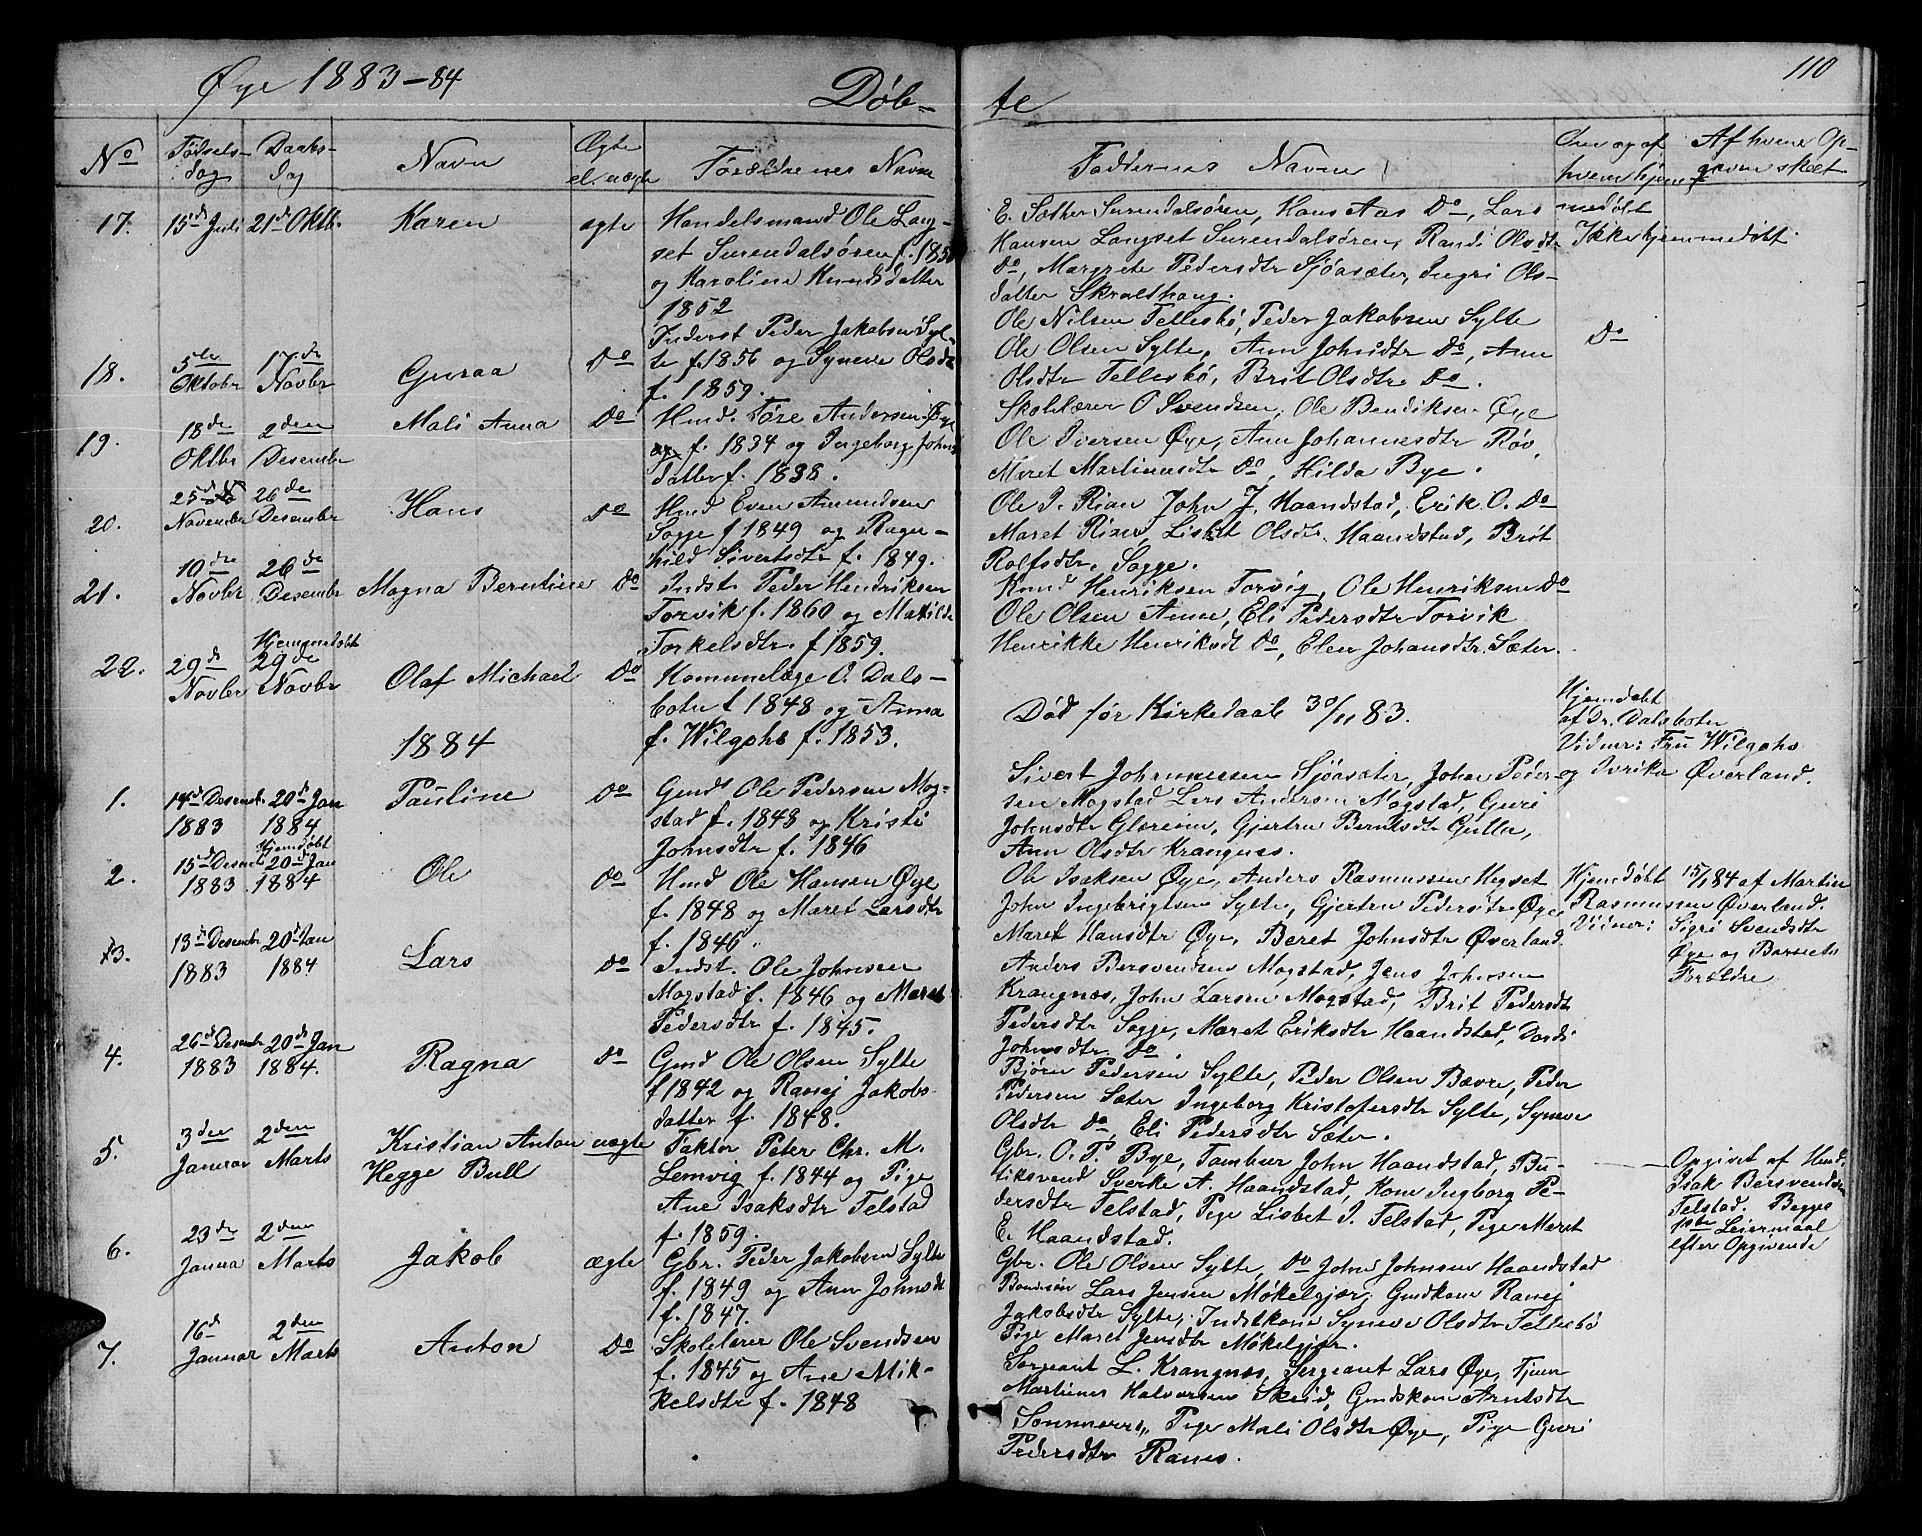 Øye 1883-84
Døb-
te
110
No
Fødsels-
dag
Daabs-
dag
Navn
Ægte
el. uægte
Forældrenes Navn
Faddernes Navne
Om og af
hvem hjem-
medøbt
Af hvem Op-
gaven skeet
17.
15de Juli
21de Oktbr.
Karen
ægte
Handelsmand Ole Lang-
set Surendalsøren f. 1850
og Karoline Knudsdatter
1852
E. Sæther Surendalsøren, Hans Aas Do, Lars
Hansen Langset Surendalsøren, Randi Olsdtr
Do, Margrete Pedersdtr Sjøasæter, Ingri Ols-
datter Skralthaug.
Ikke hjemmedøbt
18.
5te
Oktobr
17de
Novbr
Guraa
Do
Inderst Peder Jakobsen Syl-
te f. 1856 og Syneve Olsdtr
f. 1859.
Ole Nilsen Telleskø, Peder Jakobsen Sylte
Ole Olsen Sylte, Ann Johnsdtr Do, Ane
Olsdtr Telleskø, Brit Olsdtr Do.
Do
19.
18de
Oktbr
2den
Desembr
Mali Anna
Do
Hmd. Tøre Andersen Øye
f. 1834 og Ingeborg Johns
datter f. 1838.
Skolelærer O Svendsen, Ole Bendiksen Øye
Ole Iversen Øye, Ann Johannesdtr Røv,
Meret Martinusdtr Do, Hilda Bye.
20.
25de
Novembr
26de
Desembr
Hans
Do
Hmd Even Amundsen
Sogge f 1849 og Ragn-
hild Sivertsdtr f. 1849.
Ole I. Rian John J. Haandstad, Erik O. Do
Maret Rian, Lisbet Olsdr Haandstad, Brit
Rolfsdtr. Sogge.
21.
10de
Novbr
26de
Desembr
Magna Berntine
Do
Indst. Peder Hendriksen
Torvik f. 1860 og Matilde
Torkelsdtr. f 1859.
Knud Henriksen Torvig, Ole Henriksen Do
Ole Olsen Anne, Eli Pedersdtr Torvik
Henrikke Henriksdt Do, Elen Johansdtr Sæter.
22.
29de
Novbr
Hjemmedøbt
29de
Novbr
Olaf Michael
Do
Komunelæge O. Dals-
boten f 1848 og Anna
f. Wilgohs f. 1853.
Død før Kirkedaab 30/11 83.
Hjemdøbt
af Dr. Dalsboten
Vidner: Fru Wilgohs
og Ivrika Øverland.
1884
1.
14de Desembr
1883
20de Jan
1884
Pauline
Do
Gmd Ole Pedersen Mog-
stad f. 1848 og Kristi
Johnsdtr f. 1846
Sivert Johannessen Sjøasæter, John Peder-
sen Mogstad Lars Andersen Mogstad, Guri
Johnsdtr Glærum, Gjertru Berntsdtr Gulla,
Ann Olsdtr Krangnes.
2.
15de Desembr
1883
Hjemdøbt
20de Jan
1884
Ole
Do
Hmd Ole Hansen Øye
f. 1848 og Maret Larsdtr
f. 1846.
Ole Isaksen Øye, Anders Rasmussen Hegset
John Ingebrigtsen Sylte, Gjertru Pedersdtr Øye
Maret Hansdtr Øye, Beret Johnsdtr Øverland.
Hjemdøbt 15/1 84 af Martin
Rasmussen Øverland.
Vidner: Sigri Svendsdtr
Øye og Barnets
Forældre
3.
13de Desembr
1883
20de Jan
1884
Lars
Do
Indst. Ole Johnsen
Mogstad f. 1846 og Maret
Pedersdtr f. 1845.
Anders Bersvendsen Mogstad, Jens Johnsen
Krangnæs, John Larsen Mogstad, Brit Pedersdtr
Pedersdtr Sogge, Maret Eriksdtr Haandstad, Dordi
Johnsdtr Do.
4.
26de Desembr
1883
20de Jan
1884.
Ragna
Do
Gmd Ole Olsen Sylte
f 1842 og Ranej Jakobs-
datter f. 1848.
Bjørn Pedersen Sylte, Peder Olsen Bævre, Peder
Pedersen Sæter Ingeborg Kristofersdtr Sylte, Syneve
Olsdtr Do, Eli Pedersdtr Sæter.
5.
3den
Januar
2den
Marts
Kristian Anton
Hegge Bull
uægte
Faktor Peter Chr. M.
Lemvig f. 1844 og Pige
Ane Isaksdtr Telstad
f. 1859.
Gbr. O. P. Bye, Tambur John Haandstad, Bu-
tiksvend Sverke A. Haandstad, Kone Ingborg Pe-
dersdtr Telstad, Pige Lisbet I. Telstad, Pige Meret
E. Haandstad.
Opgivet af Hmd.
Isak Bersvendsen
Telstad. Begges
1ste Leiermaal
efter Opgivende
6.
23de
Janua
2den
Marts
Jakob
ægte
Gbr. Peder Jakobsen Sylte
f. 1849 og Ann Johnsdt
f. 1847.
Gbr. Ole Olsen Sylte, Do John Johnsen Haandstad
Bondesøn Lars Jensen Møkelgjær, Gmdkone Ranej
Jakobsdtr Sylte, Indstkone Syneve Olsdtr Telleskø
Pige Maret Jensdtr Møkelgjær.
7.
16de
Januar
2den
Marts
Anton
Do
Skolelærer Ole Svendsen
f. 1845 og Ane Mik-
kelsdtr f. 1848
Sergeant L. Krangnes, Sergeant Lars Øye, Tjener
Martinus Halvorsen Skeid, Gmdskone Arntsdtr
Sommerro, Pige Mali Olsdtr Øye, Pige Guri
Pedersdtr Ranes.